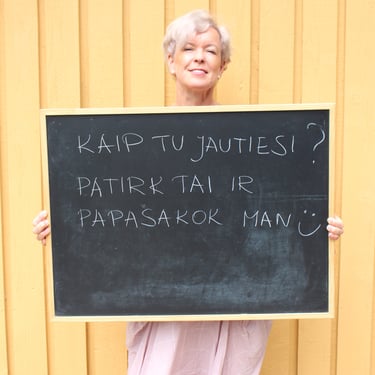 KAIP TU JAUTIESI?
PATIRK TAI IR
PAPASAKOK MAN :)